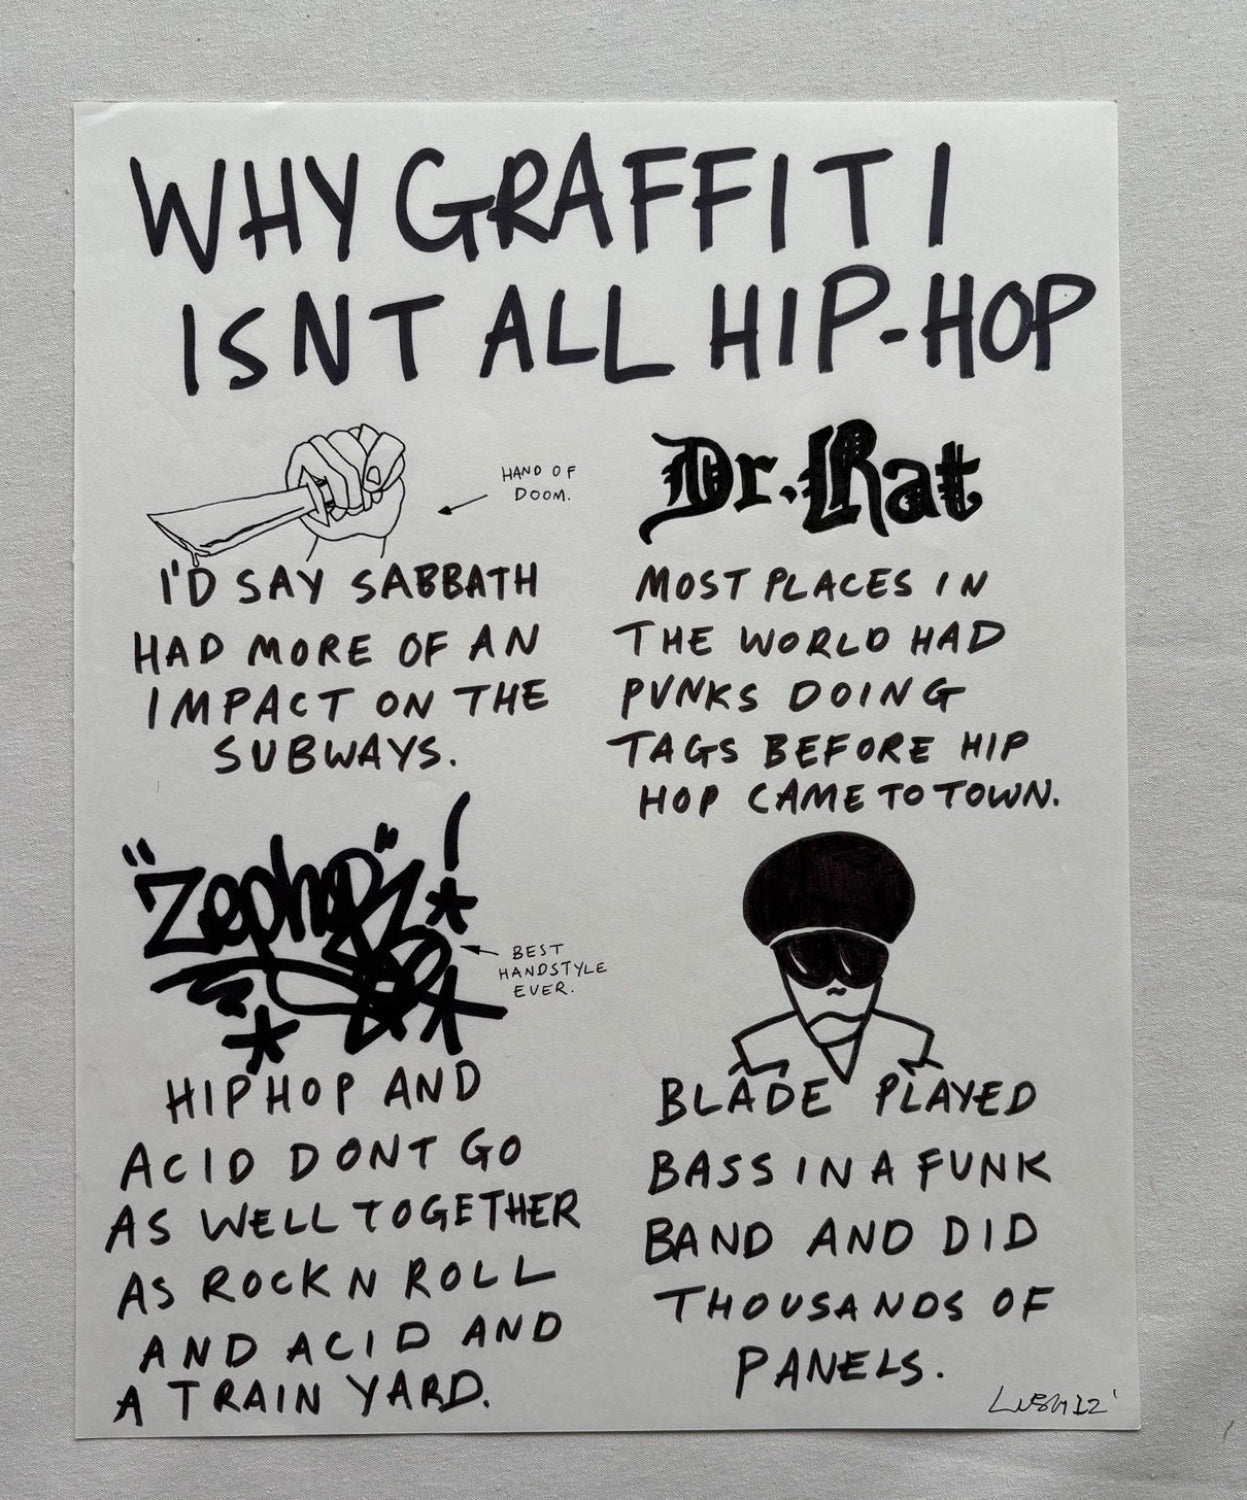 WHY GRAFFITI
ISNT ALL HIP-HOP
HAND OF
DOOM.
I'D SAY SABBATH
HAD MORE OF AN
IMPACT ON THE
SUBWAYS.
Dr. Rat
MOST PLACES IN
THE WORLD HAD
PUNKS DOING
TAGS BEFORE HIP
HOP CAME TO TOWN.
"Zephyr"!
BEST
HANDSTYLE
EVER.
HIPHOP AND
ACID DONT GO
AS WELL TOGETHER
AS ROCK N ROLL
AND ACID AND
A TRAIN YARD.
BLADE PLAYED
BASS IN A FUNK
BAND AND DID
THOUSANDS OF
PANELS.
LUSH 12'